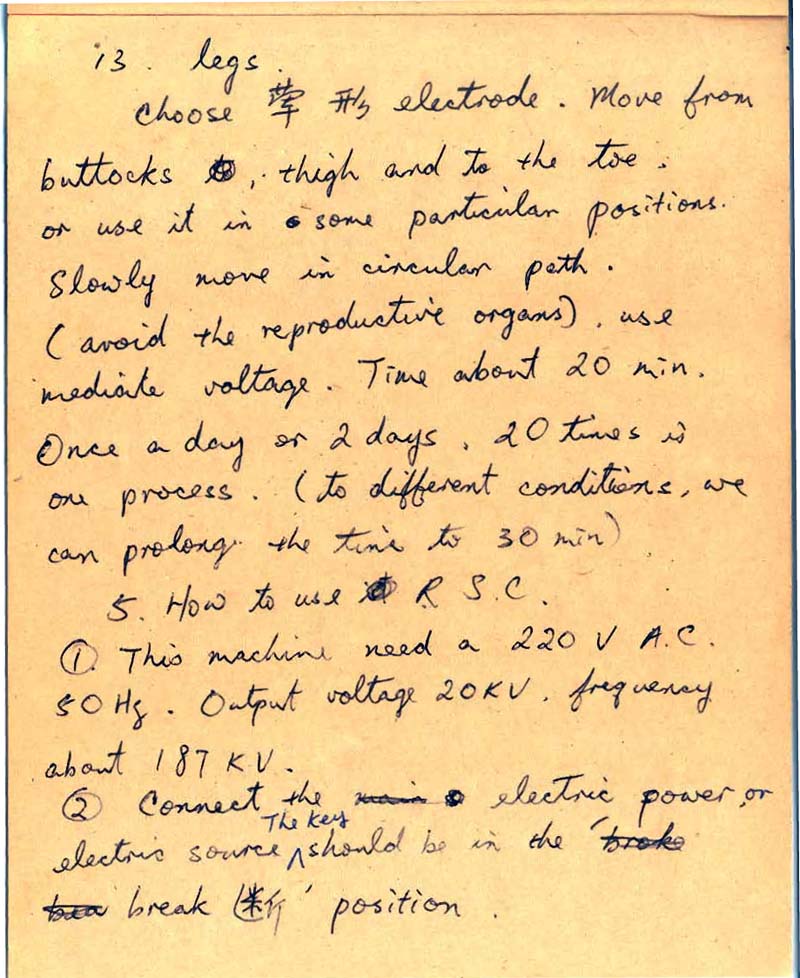 13. legs.
Choose 荤形 electrode. Move from
buttocks, thigh and to the toe.
or use it in some particular positions.
Slowly move in circular path.
(avoid the reproductive organs), use
mediate voltage. Time about 20 min.
Once a day or 2 days, 20 times is
one process. (to different conditions, we
can prolong the time to 30 min)
5. How to use R.S.C.
① This machine need a 220 V A.C.
50 Hz. Output voltage 20KV, frequency
about 187 KV.
② Connect the main electric power, or
electric source The Key should be in the 'broke
break (断)' position.